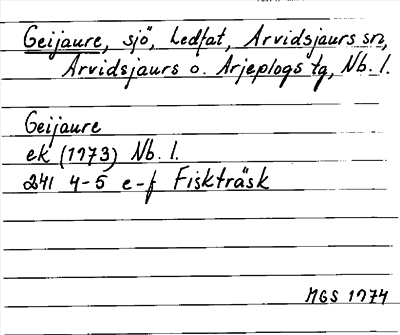 Geijaure, sjö, Ledfat, Arvidsjaurs sn,
Arvidsjaurs o. Arjeplogs tg, Nb. l.
Geijaure
ek (1973) Nb. l.
241 4-5 e-f Fiskträsk
MGS 1974